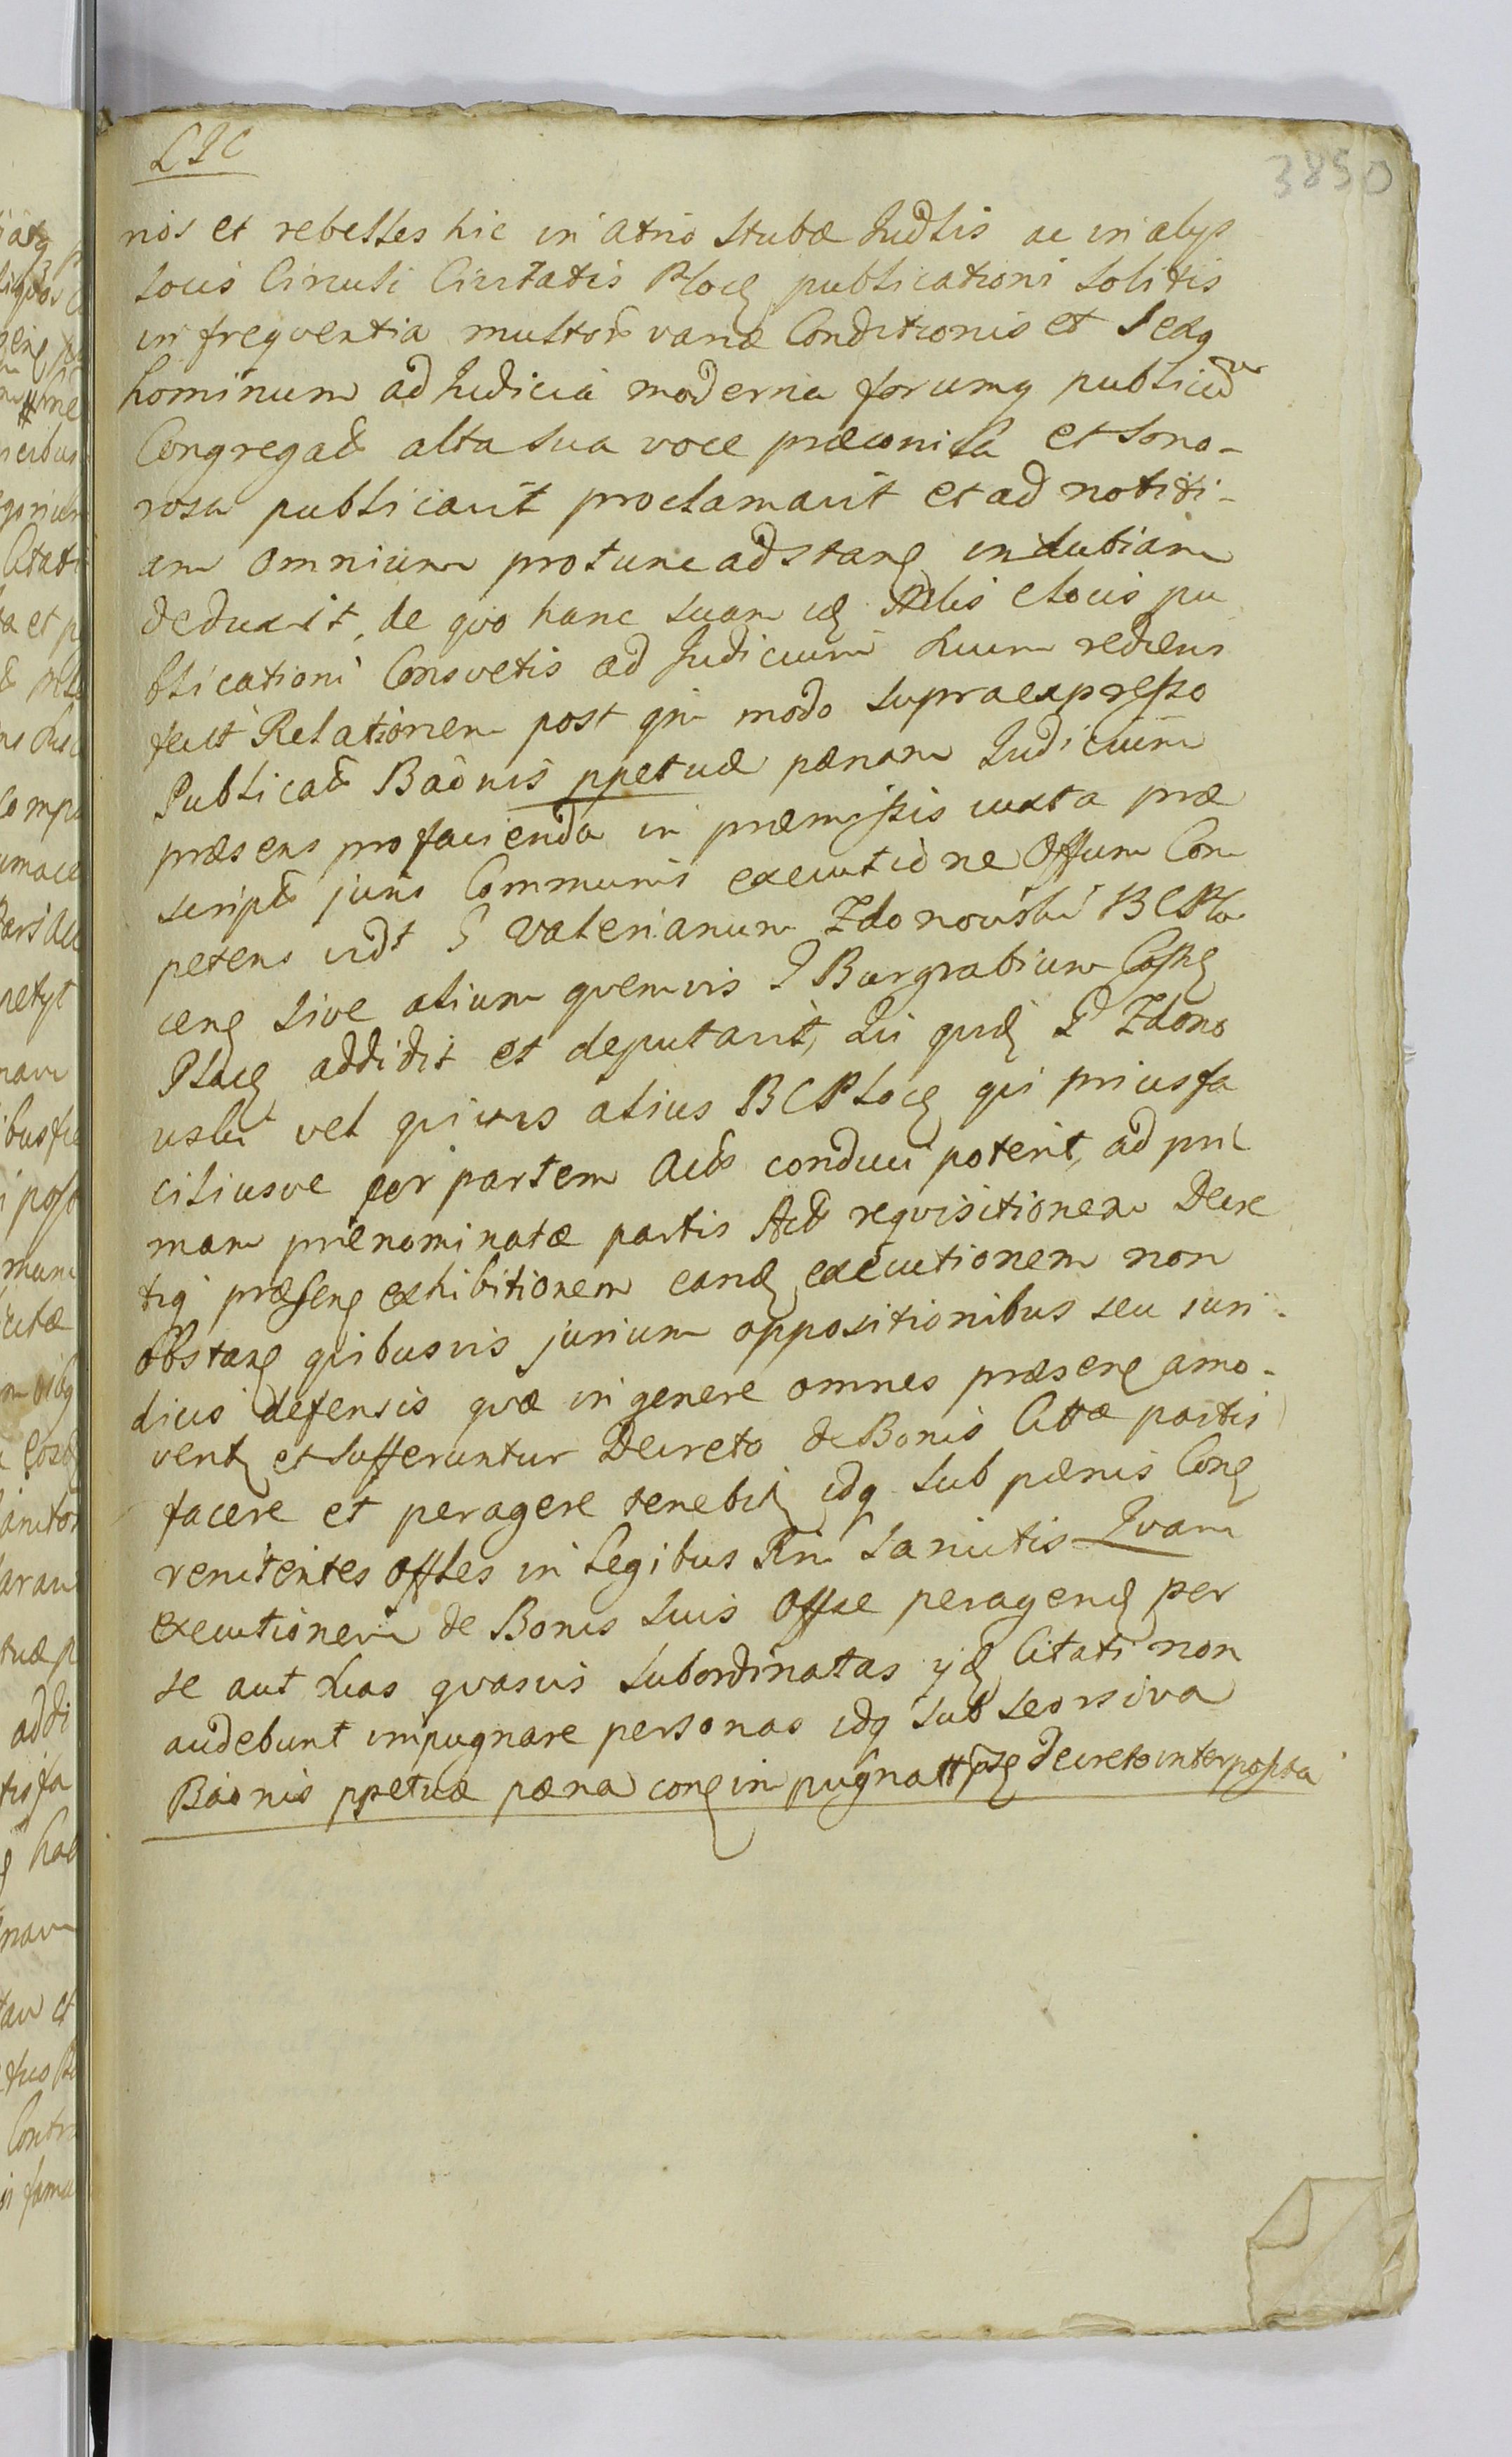 LIC
3850
nos et rebelles hic in atrio Stubæ Judlis ac in alys
locis Circuli Civitatis Ploc publicationi solitis
in freqventia multor variæ Conditionis et Sexq
hominum ad Judicia moderna forumq publicu
Congregat alta sua voce præconica et sono-
rosa publicavit proclamavit et ad notiti-
am omnium protunc adstan indubiam
deduxit, de qvo hanc suam id Mlis e locis pu
blicationi Consvetis ad Judicium suum rediens
fecit Relationem post qm modo supraexpresso
Publicat Baonis ppetuæ pænam Judicium
præsens pro facienda in præmissis iuxta præ
script juris Communis executione Offum Com
petens vdt G Valerianum Zdonowski BCPlo
cen sive alium qvemvis G Burgrabium Casn
Ploc addidit et deputavit, Qui qvid G Zdono
wski vel qvivis alius BCPloc qvi prius fa
ciliusve per partem Act conduci poterit, ad pri
mam prænominatæ partis Act reqvisitionem Decre
tiq præsen exhibitionem eand executionem non
obstan qvibusvis jurium oppositionibus seu juri-
dicis defensis qvæ in genere omnes præsen amo-
vent et sufferuntur Decreto de Bonis Cittæ partis
facere et peragere tenebit idq sub pænis Con
renitentes Offles in Legibus Rni sancitis Qvam
executionem de Bonis suis Offse peragend per
se aut suas qvasvis subordinatas yd Citati non
audebunt impugnare personas idq sub seorsiva
Baonis ppetuæ pæna con inpugnatt pse decreto interposita